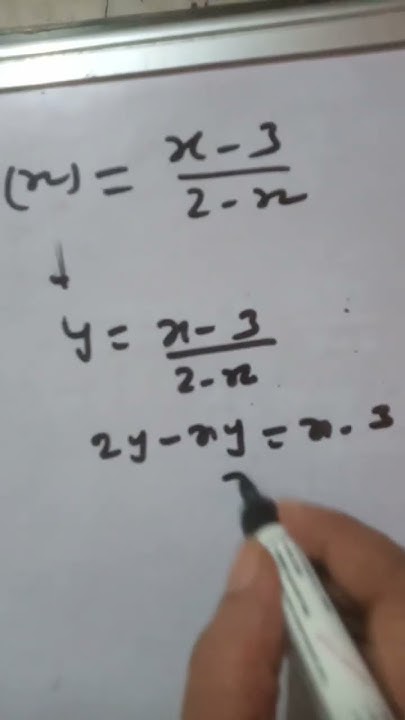 (x) = x - 3 / 2 - x
y = x - 3 / 2 - x
2y - xy = x - 3